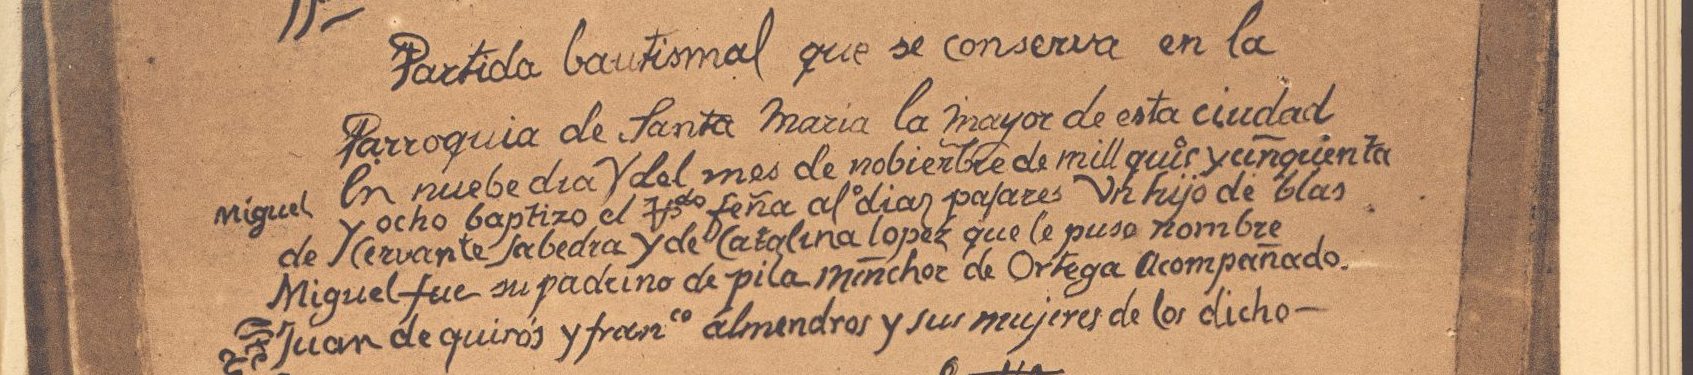 Partida bautismal que se conserva en la
Parroquia de Santa Maria la mayor de esta ciudad
En nuebe dia y del mes de nobienbre de mill quis y cinquenta
Miguel y ocho baptizo el sdo señа al diaz pajares Un hijo de blas
de Cervante sabedra y de Catalina lopez que le puso nombre
Miguel fue su padrino de pila minchor de Ortega acompañado.
Juan de quirós y franco almendros y sus mujeres de los dicho—